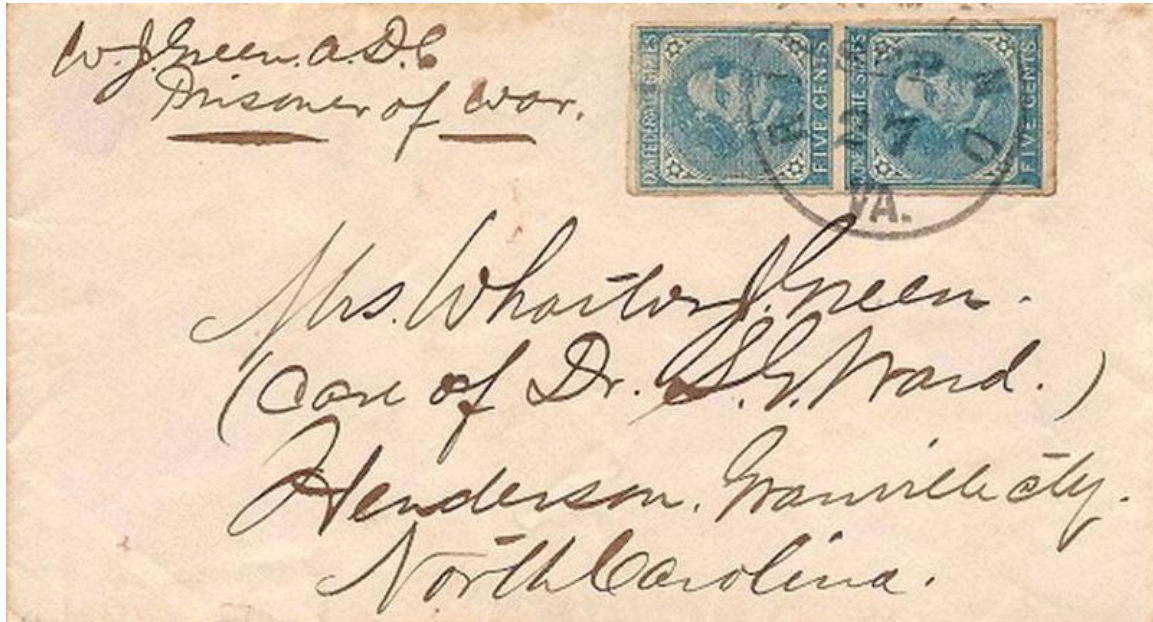 W. J. Green. A.D.C
Prisoner of war.
CONFEDERATE STATES
FIVE CENTS
CONFEDERATE STATES
FIVE CENTS
VA.
Mrs. Wharton J. Green.
(Care of Dr. S. G. Ward.)
Henderson, Granville cty.
North Carolina.